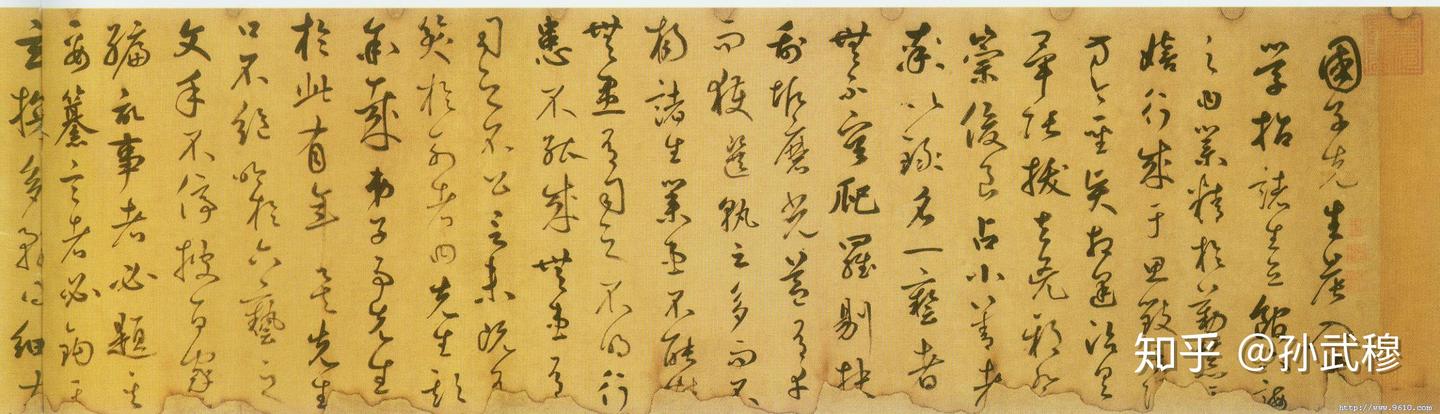 國子先生晨入
學招諸生立館下誨
之曰業精於勤荒于
嬉行成于思毀于
方今聖賢相逢治具
畢張拔去兇邪登
崇俊良占小善者
率以錄名一藝者
無不容爬羅剔抉
刮垢磨光蓋有幸
而獲選孰云多而不
揚諸生業患不能
無患有司之不明行
患不能成無患有
司之不公言未既有
笑於列者曰先生欺
余哉弟子事先生
於此有年矣先生
口不絕吟於六藝之
文手不停披百家
編記事者必題其
要纂言者必鉤其
玄多務得細大
知乎 @孙武穆
http://www.9610.com